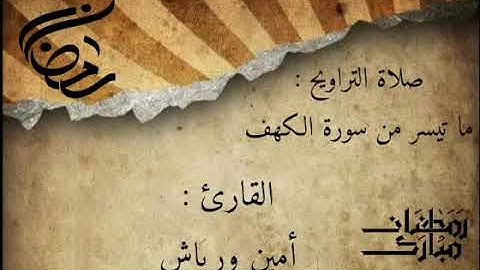 رمضان
صلاة التراويح :
ما تيسر من سورة الكهف
القارئ :
أمين ورياش
رمضان
مبارك